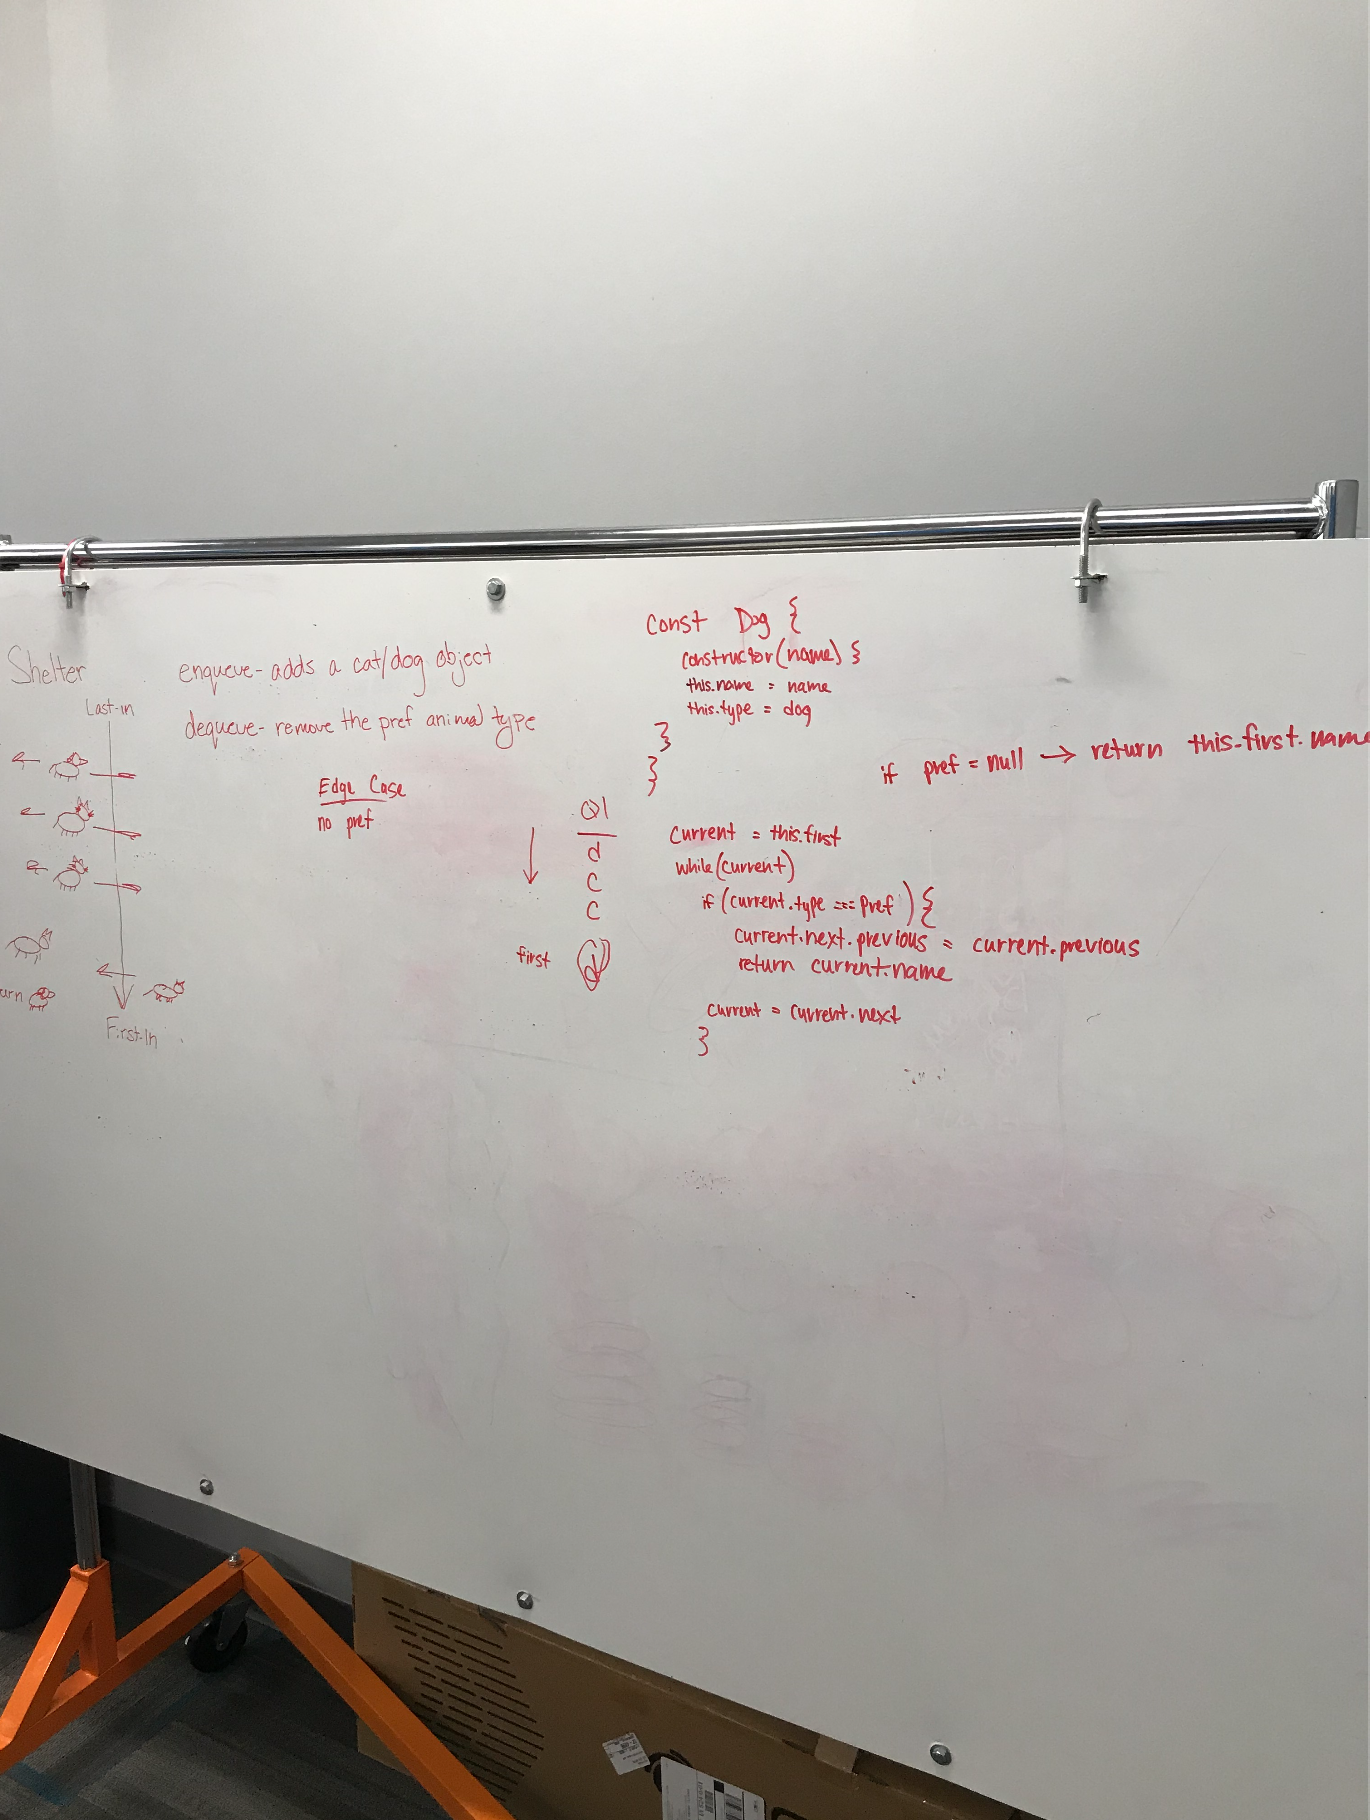 Shelter
Last-in
First-In
enqueue- adds a cat/dog object
dequeue- remove the pref animal type
Edge Case
no pref
Q1
d
C
C
first d
const Dog {
constructor(name) {
this.name = name
this.type = dog
}
}
if pref = null → return this.first.name
Current = this.first
while(current)
if (current.type === pref) {
current.next.previous = current.previous
return current.name
current = current.next
}